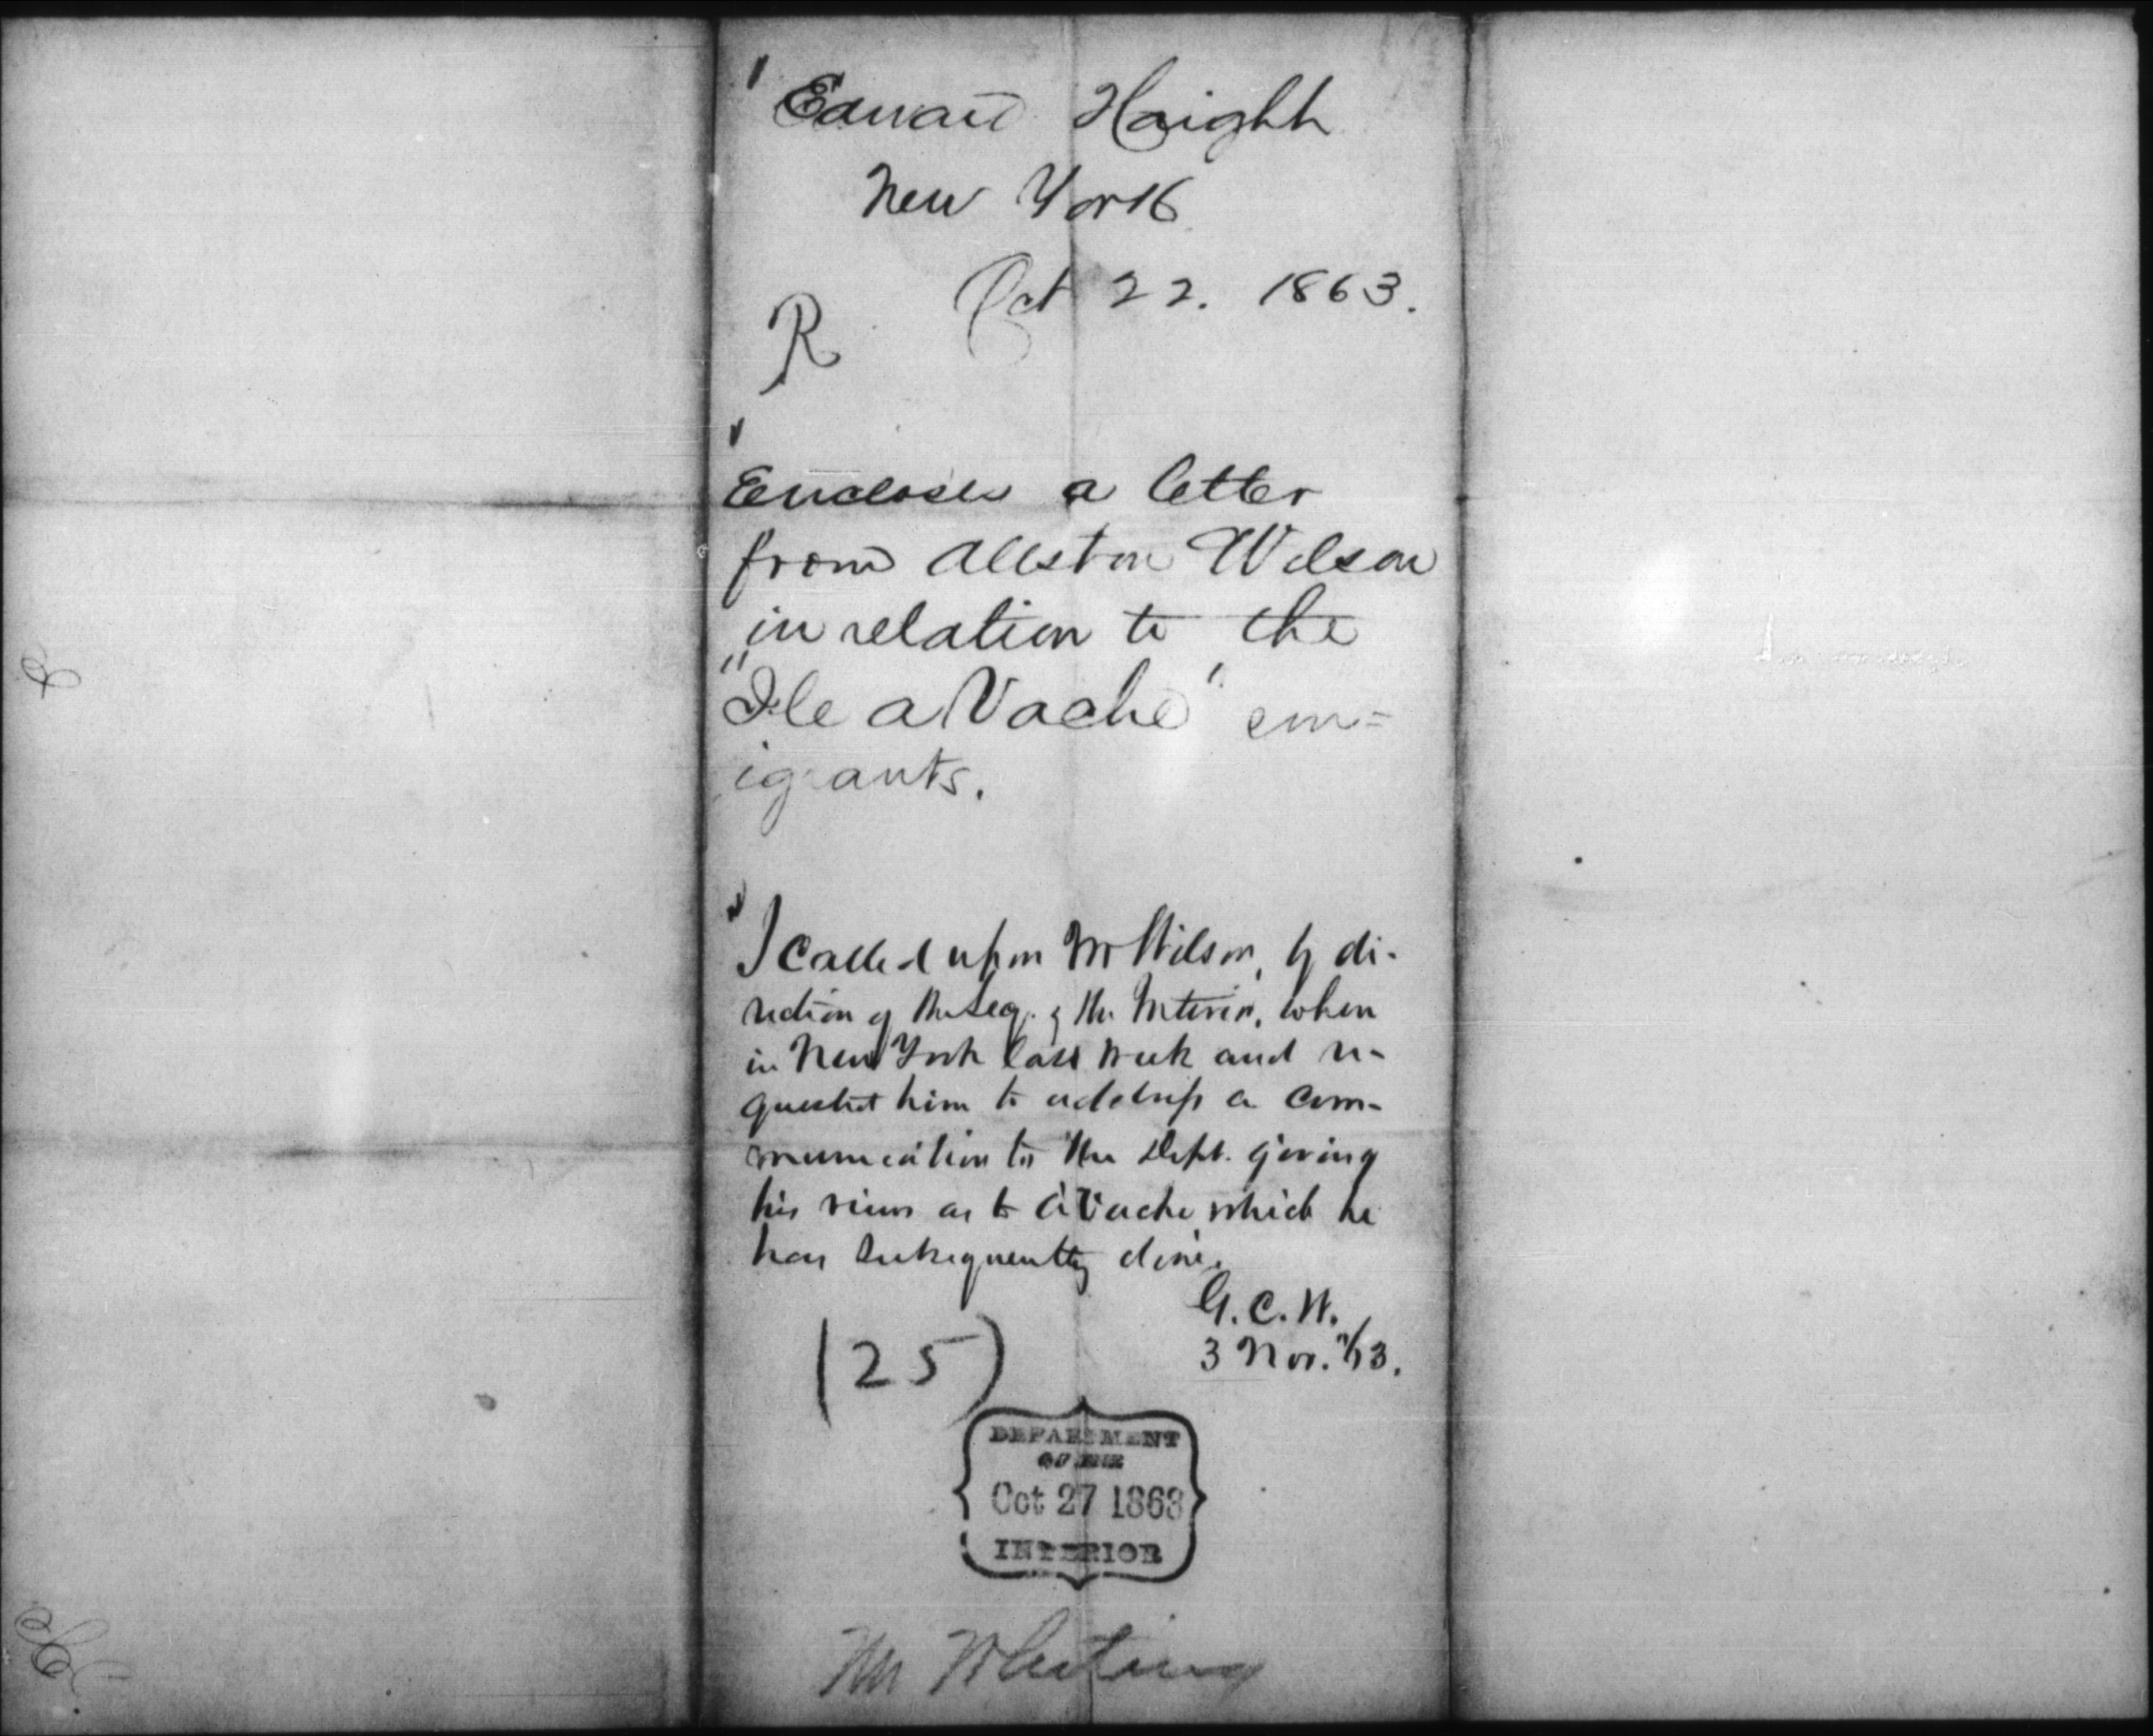 Edward Haight
New York
Oct 22. 1863.
R
Encloses a letter
from Allston Wilson
in relation to the
"Ile a Vache" em=
igrants.
I called upon Mr Wilson, by di-
rection of the Secy. of the Interior, when
in New York last week and re-
quested him to address a com-
munication to the Dept. giving
his views as to A'Vache which he
has subsequently done.
G. C. W.
3 Nov. "/63.
(25)
DEPARTMENT
OF THE
Oct 27 1863
INTERIOR
Mr Whiting